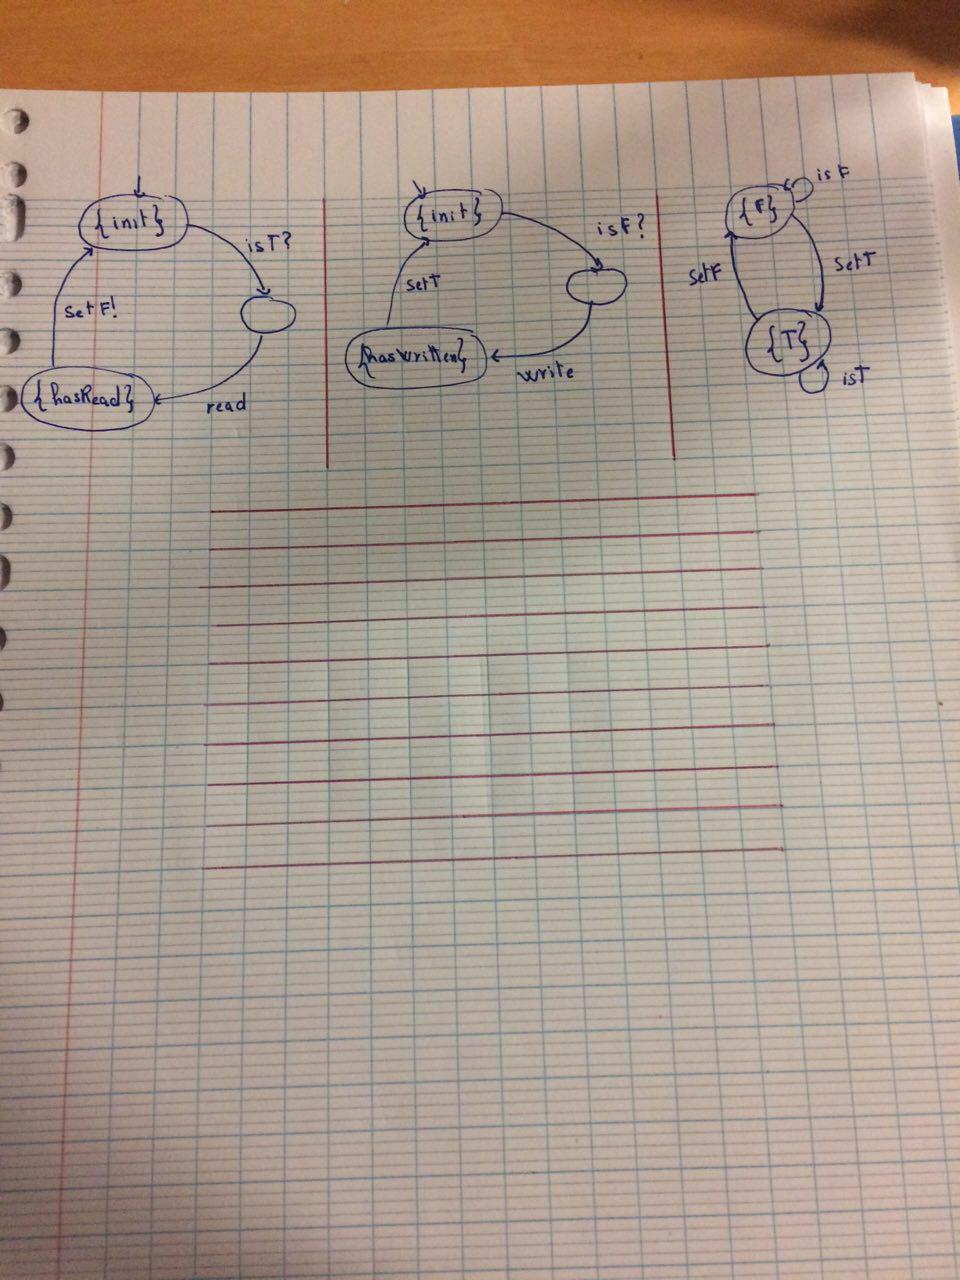 {init}
isT?
setF!
{hasRead}
read
{init}
isF?
setT
{hasWritten}
write
{F}
isF
setF
setT
{T}
isT